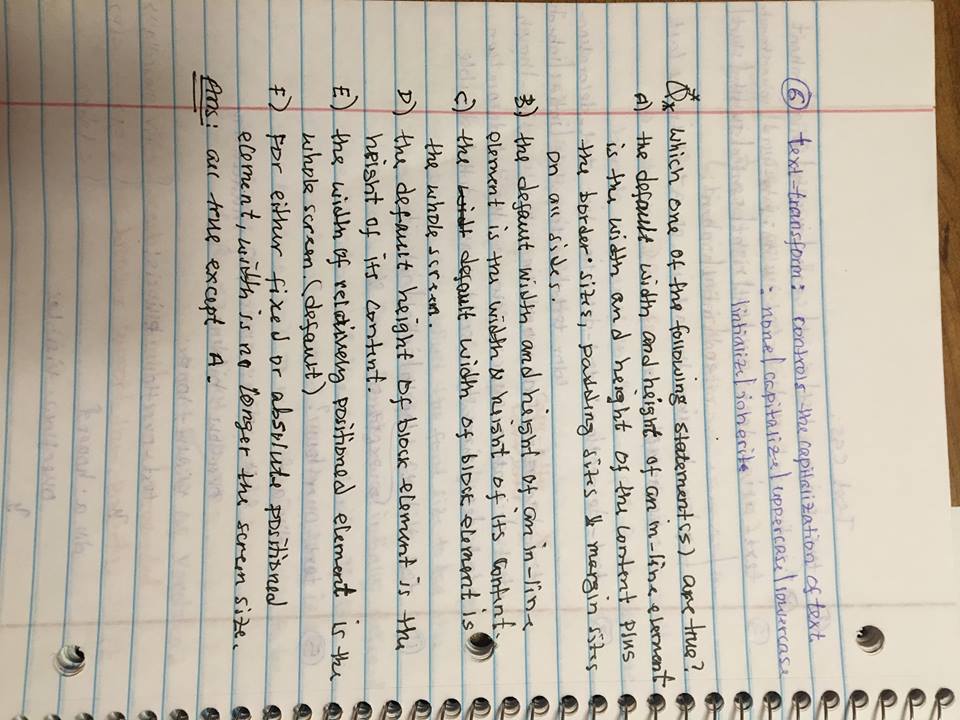 ⑥ text-transform: controls the capitalization of text
: none/capitalize/uppercase/lowercase
/intialize/inherite
Q* which one of the following statement(s) are true?
A) the default width and height of an in-line element
is the width and height of the content plus
the border sizes, padding sizes & margin sizes
on all sides.
B) the default width and height of an in-line
element is the width & height of its content.
C) the widt default width of block element is
the whole screen.
D) the default height of block element is the
height of its content.
E) the width of relatively positioned element is the
whole screen (default)
F) For either fixed or absolute positioned
element, width is no longer the screen size.
Ans: all true except A.